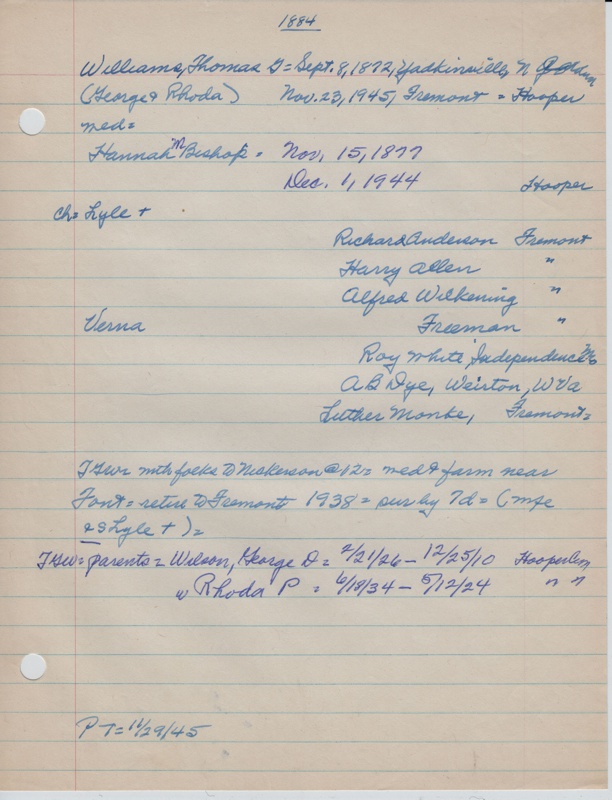 1884
Williams, Thomas G = Sept. 8, 1872, Yadkinville, N
(George & Rhoda) Nov. 23, 1945, Fremont = Hooper
med =
Hannah M Bishop = Nov. 15, 1877
Dec. 1, 1944 Hooper
ch = Lyle +
Richard Anderson Fremont
Harry Allen "
Alfred Wilkening "
Verna Freeman "
Roy White, Independence Mo
AB Dye, Weirton, W Va
Luther Monke, Fremont =
TGW = with folks to Nickerson @ 12 = med & farm near
Font = retire to Fremont 1938 = sur by 7d = (
& S Lyle +) =
TGW = parents = Wilson, George D = 2/21/26 - 12/25/10 Hooper Cem
w Rhoda P = 6/18/34 - 5/12/24 " "
PT = 11/29/45